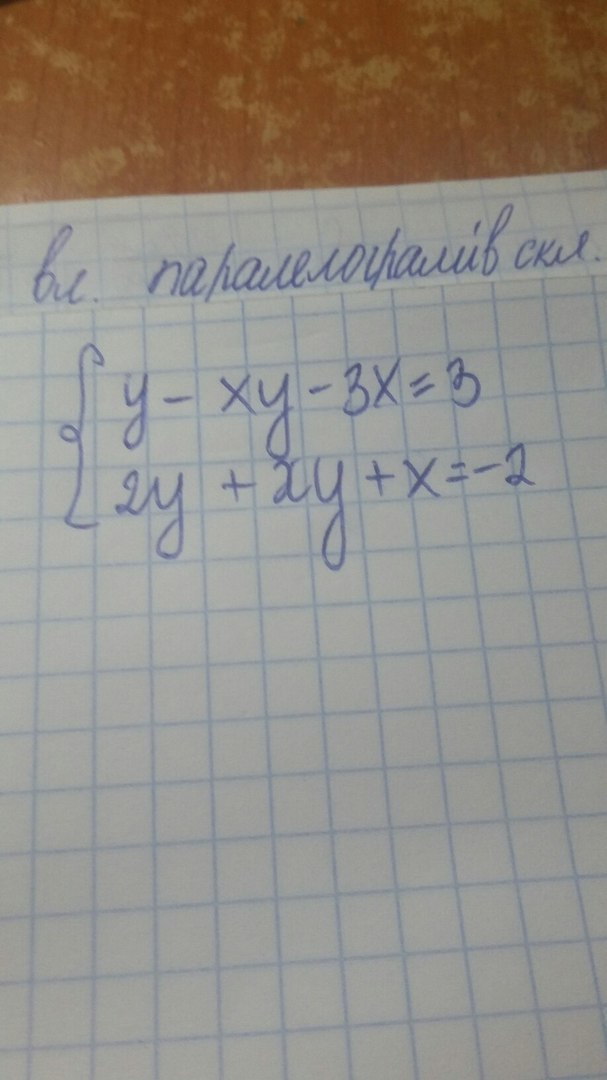 вл. паралелограмів скл.
{ y - xy - 3x = 3
2y + xy + x = -2